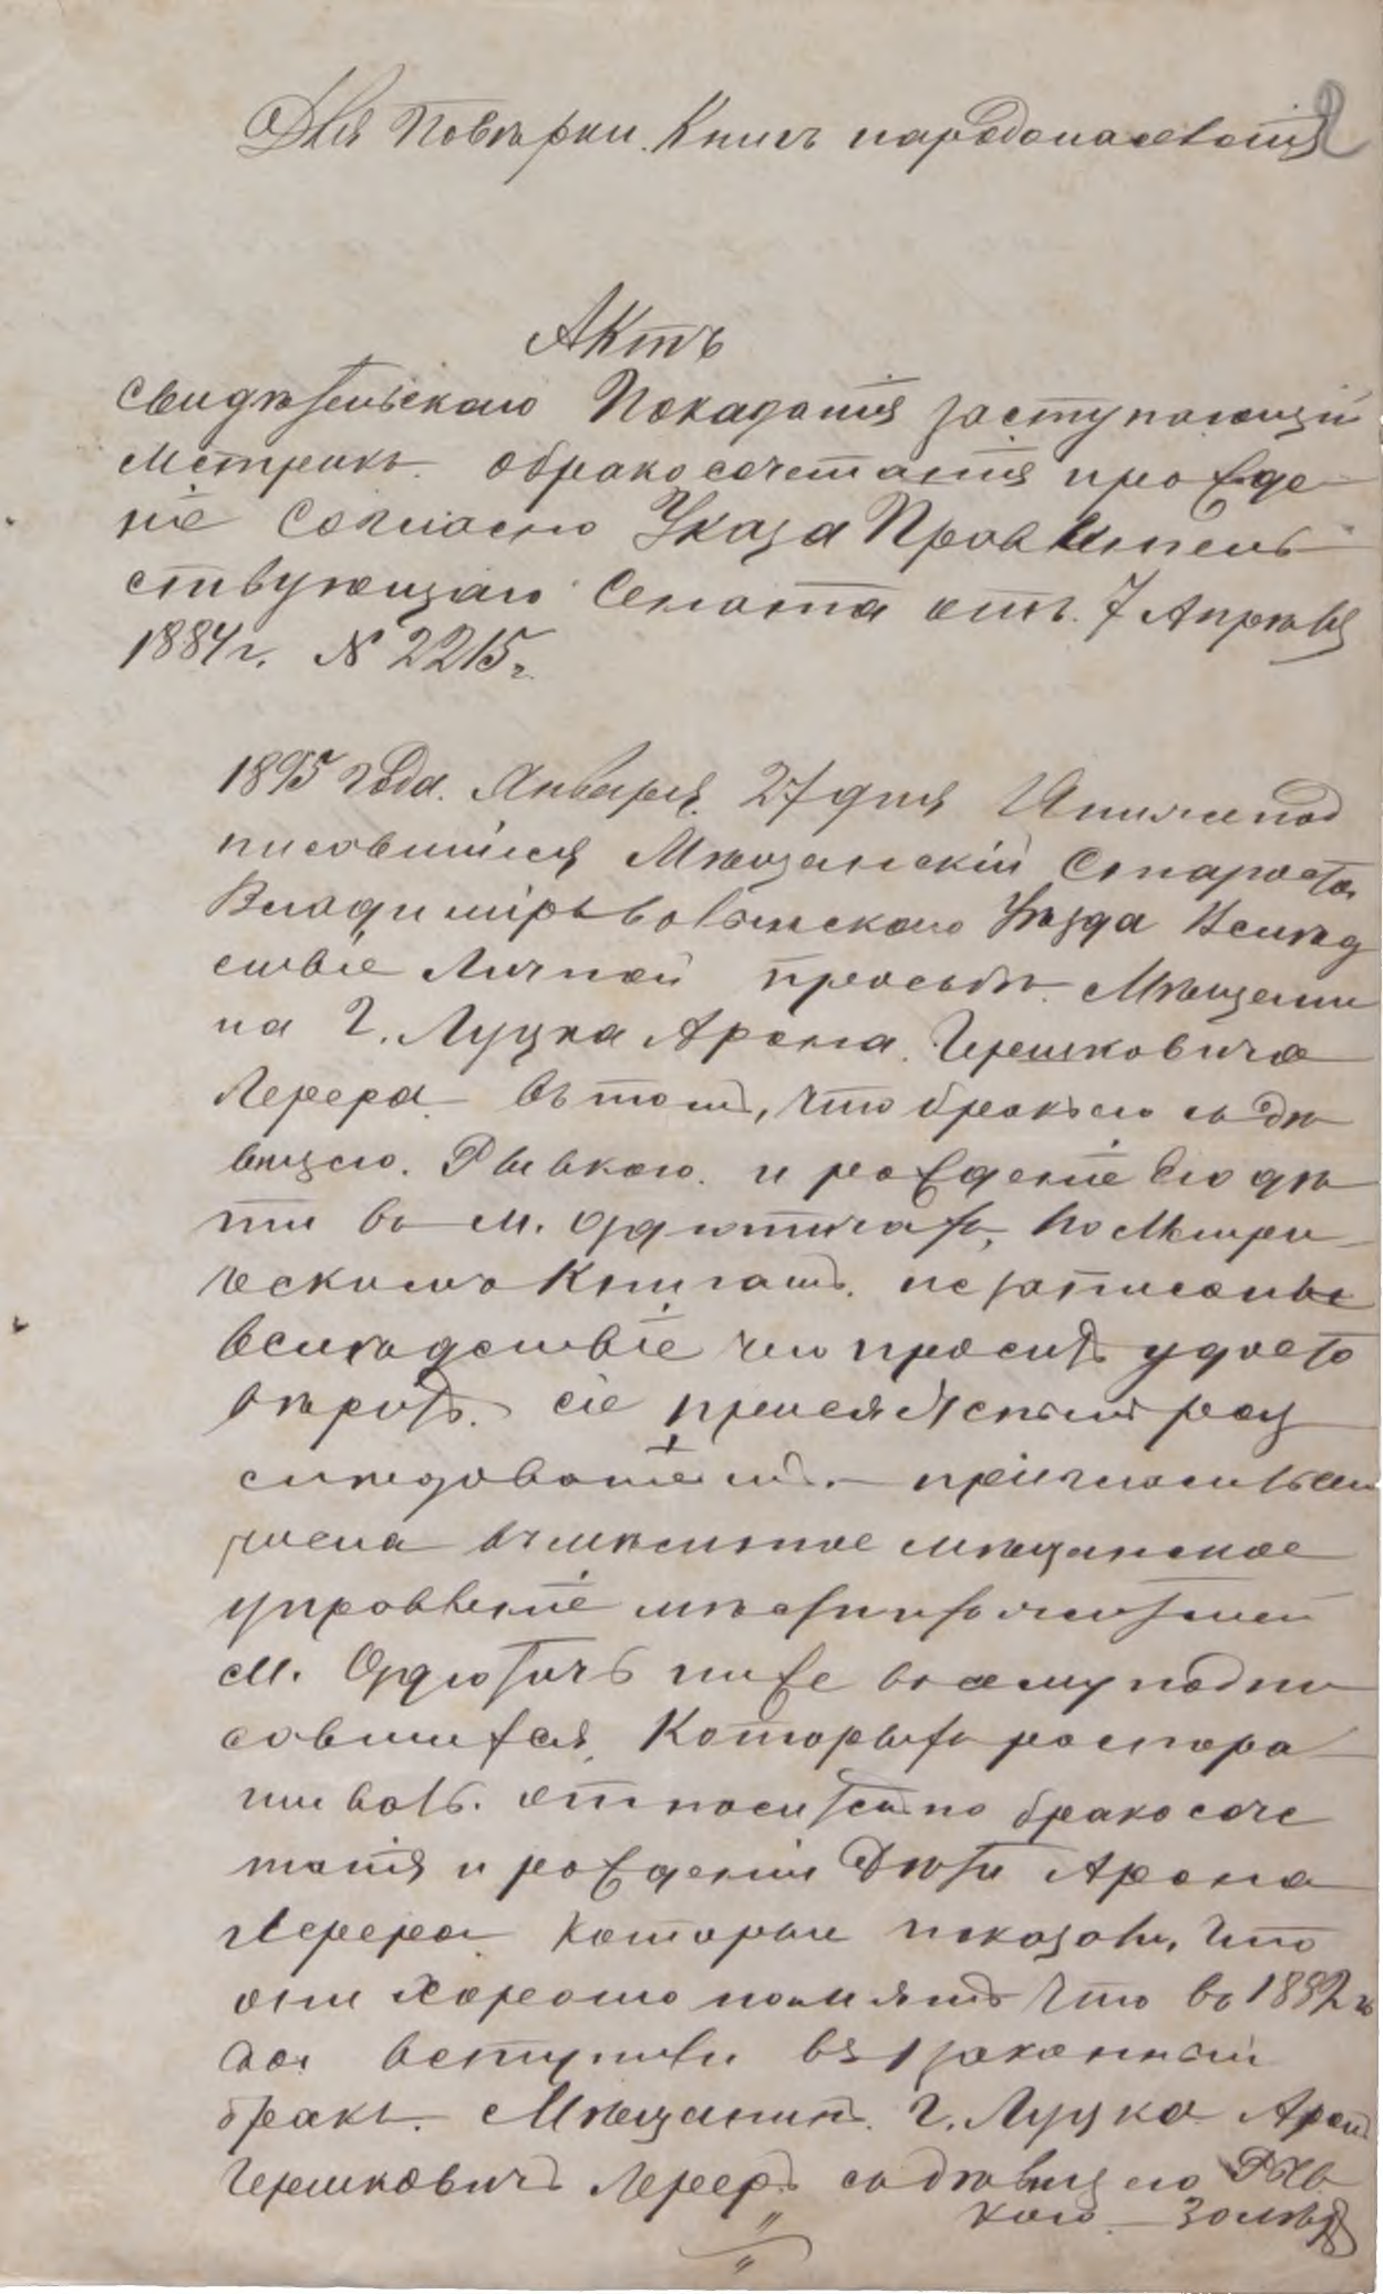 Для Повѣрки Книгъ народонаселенія
2
Актъ
свидѣтельскаго Показанія заступающій
Метрикъ обракосочетанія и рожде-
ніе Согласно Указа Правительъ
ствующаго Сената отъ 7 Апрѣля
1884 г. № 2215 г.
1895 года. Января 27 дня Я нижепод
писавшійся Мѣщанскій Староста
Владиміръволынского Уѣзда Вслѣд
ствіе Личной просьбы Мѣщани
на г. Луцка Арона Гершковича
Лерера въ томъ, что бракъ его съ дѣ
вицею Рывкою и рожденіе его дѣ
ти въ м. по Метри
ческимъ Книгамъ не записаны
вслѣдствіе чего проситъ удосто
вѣрить сіе присяжнымъ раз
слѣдованіемъ. — пригласилъ
въ мѣстное мѣщанское
управленіе мѣстныхъ жителей
м. ниже всему подпи
савшихся, Которыхъ распра
шивалъ относительно бракосоче
танія и рожденіи Дѣти Арона
Лерера которые показали, что
они хорошо помнятъ что въ 1892 го
да вступили въ законный
бракъ Мѣщанинъ г. Луцка Аронъ
Гершковичъ Лереръ съ дѣвицею Рыв
кою —